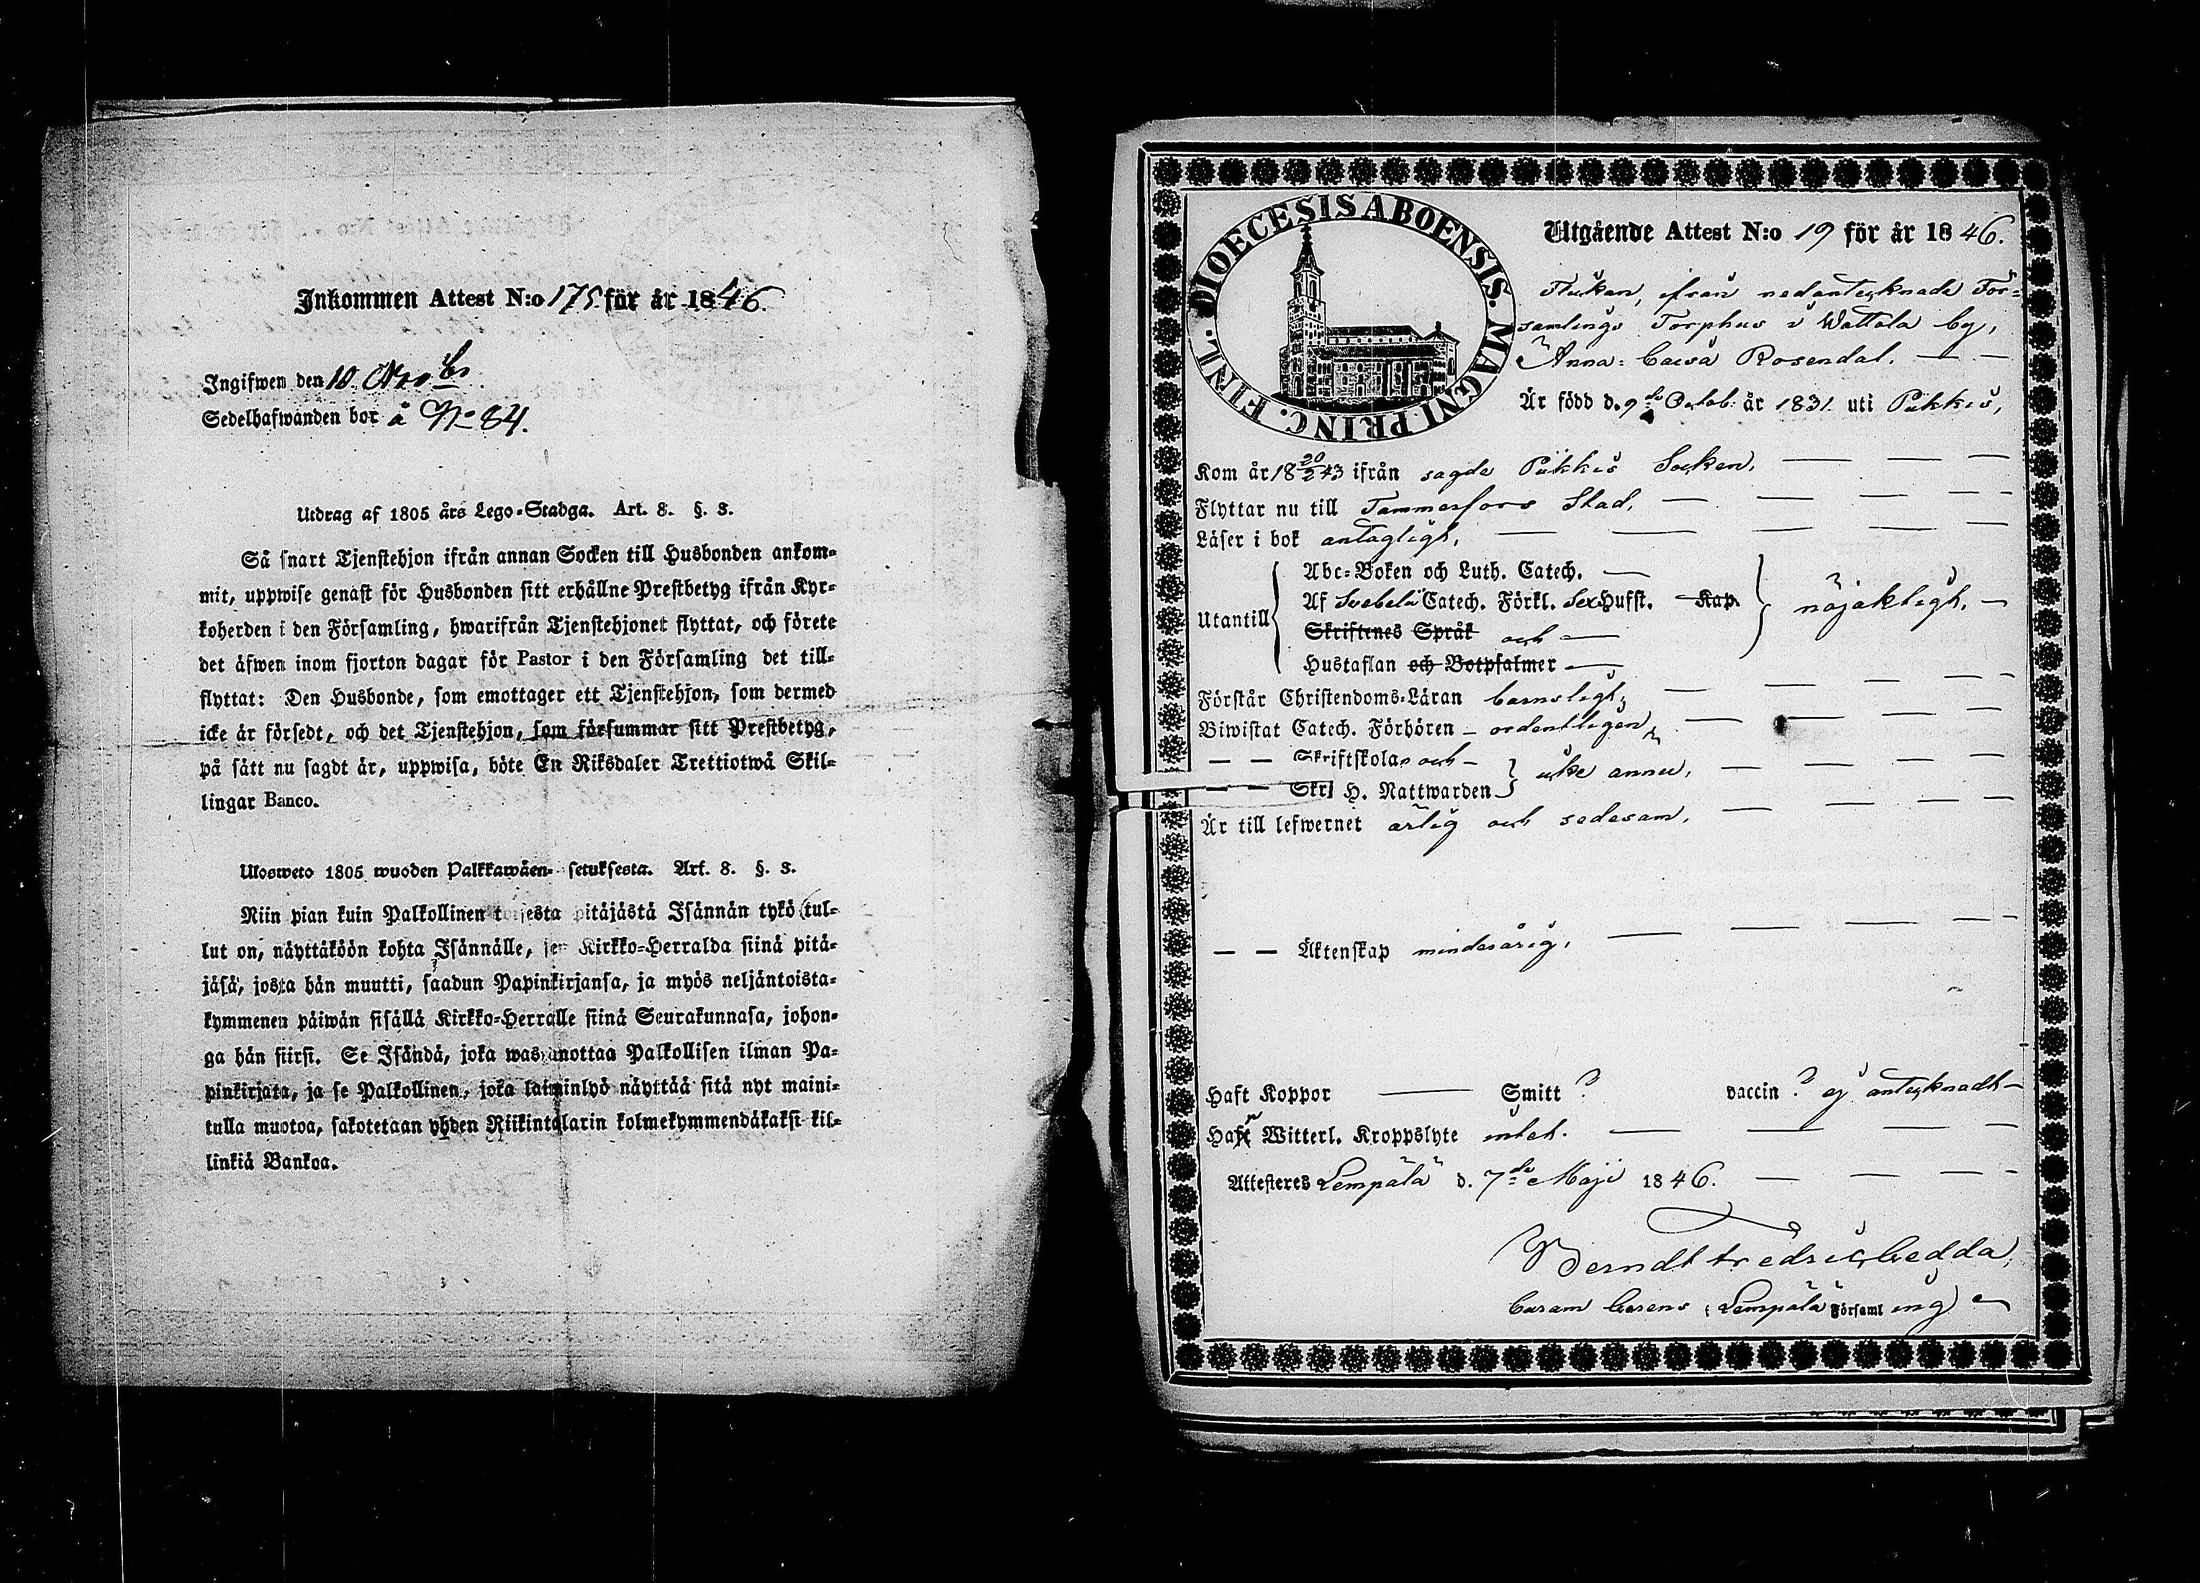 Inkommen Attest N:o 175. för år 1846.
Ingifwen den 10. Novbr
Sedelhafwanden bor å No 84.
Utdrag af 1805 års Lego-Stadga. Art. 8. §. 3.
Så snart Tjenstehjon ifrån annan Socken till Husbonden ankom-
mit, uppwise genast för Husbonden sitt erhållne Prestbetyg ifrån Kyr-
koherden i den Församling, hwarifrån Tjenstehjonet flyttat, och förete
det äfwen inom fjorton dagar för Pastor i den Församling det till-
flyttat: Den Husbonde, som emottager ett Tjenstehjon, som dermed
icke är försedt, och det Tjenstehjon, som försummar sitt Prestbetyg,
på sätt nu sagdt är, uppwisa, böte En Riksdaler Trettiotwå Skil-
lingar Banco.
Ulosweto 1805 wuoden Palkkawäen- setuksesta. Art. 8. §. 3.
Niin pian kuin Palkollinen toisesta pitäjästä Isännän tykö tul-
lut on, näyttäköön kohta Isännälle, sen Kirkko-Herralda siinä pitä-
jäsä, josta hän muutti, saadun Papinkirjansa, ja myös neljäntoista-
kymmenen päiwän sisällä Kirkko-Herralle siinä Seurakunnasa, johon-
ga hän siirsi. Se Isändä, joka wastanottaa Palkollisen ilman Pa-
pinkirjata, ja se Palkollinen, joka laiminlyö näyttää sitä nyt maini-
tulla muotoa, sakotetaan yhden Riikintalarin kolmekymmendäkaksi kil-
linkiä Bankoa.
DIOECESIS ABOENSIS. MAGNI PRINC. FINL.
Utgående Attest N:o 19 för år 1846.
Flickan, ifrån nedantecknade För-
samlings Torphus i Wattola by,
Anna Caisa Rosendal.
Är född d. 9de Octob. år 1831 uti Pikkis,
Kom år 18 20/2 43 ifrån sagde Pikkis Socken.
Flyttar nu till Tammerfors Stad,
Läser i bok antagligt,
Utantill
Abc-Boken och Luth. Catech.
Af Svebelii Catech. Förkl. Sex Hufst. Kap.
Skriftenes Språk och
Hustaflan och Botpsalmer
nöjaktigt.
Förstår Christendoms-Läran barnsligt,
Biwistat Catech. Förhören ordentligen
Skriftskolan och
Skri H. Nattwarden
icke ännu.
Är till lefwernet ärlig och sedesam.
Äktenskap minderårig.
Haft Koppor Smitt ? vaccin ? ej antecknadt
Har Witterl. Kroppslyte intet.
Attesteres Lempälä d. 7de Maji 1846.
Berndt Fredric Gedda,
Curam Gerens i Lempälä Församling